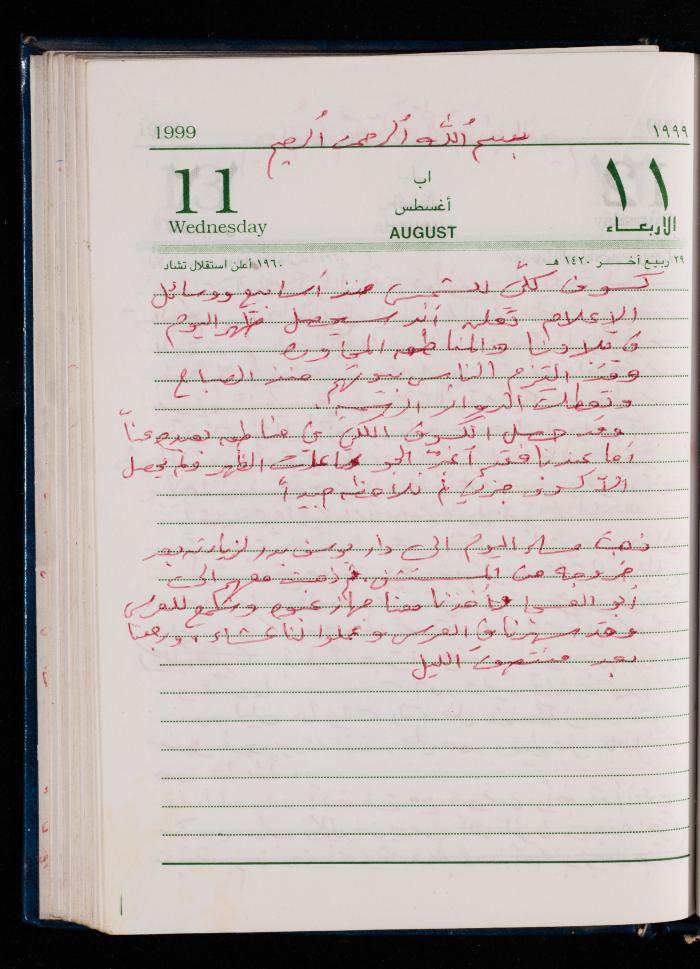 1999
١٩٩٩
بسم الله الرحمن الرحيم
11
اب
١١
Wednesday
أغسطس
الاربعاء
AUGUST
٢٩ ربيع آخر ١٤٢٠ هـ
١٩٦٠ أعلن استقلال تشاد
كسوف كلّي للشمس منذ أسابيع ووسائل
الإعلام تعلن أنه سيحصل ظهر اليوم
في بلادنا والمناطق المجاورة
وقد التزم الناس بيوتهم منذ الصباح
وتعطلت الدوائر الرسمية.
وقد حصل الكسوف الكلي في مناطق بعيدة عنّا
أما عندنا فقد الجو ساعات الظهر ولم يحصل
الا كسوف جزئي لم نلاحظه جيداً
ذهبت مساء اليوم الى دار يوسف بدر لزيارته بعد
خروجه من المستشفى ثم ذهبت معهم الى
أبو العسى وأخذنا معنا جهاز للعرس
وقد سهرنا في العرس وعملوا لنا عشاء، ورجعنا
بعد منتصف الليل